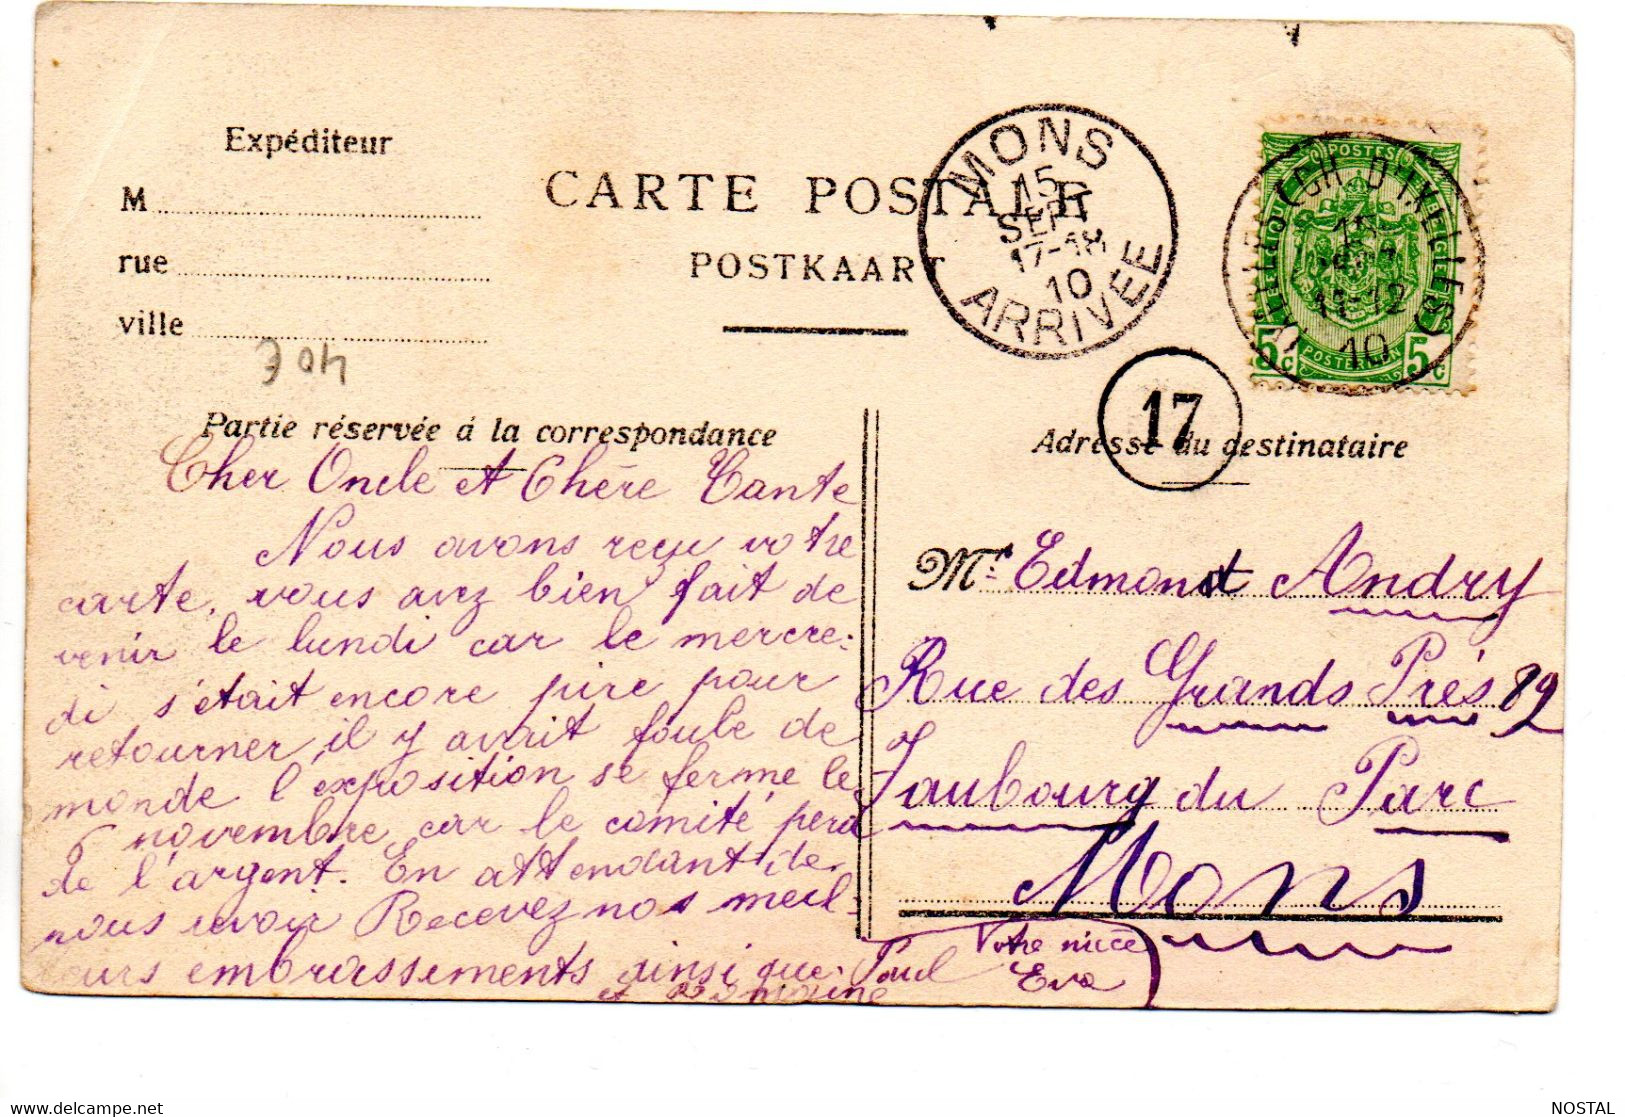 Expéditeur
M
rue
ville
70 E
CARTE POSTALE
POSTKAART
MONS
15
SEPT
17-18
10
ARRIVEE
17
POSTES
5c 5c
(CH. D'IXELLES)
15
11-12
10
Partie réservée à la correspondance
Cher Oncle et Chère Tante
Nous avons reçu votre
carte, vous avez bien fait de
venir le lundi car le mercre-
di s'était encore pire pour
retourner il y avait foule de
monde l'exposition se ferme le
6 novembre car le comité perd
de l'argent. En attendant de
nous revoir Recevez nos meil-
leurs embrassements ainsi que Paul
et Germaine
Votre nièce
Eva
Adresse du destinataire
Mr. Edmond Andry
Rue des Grands Prés 89
Faubourg du Parc
Mons
NOSTAL